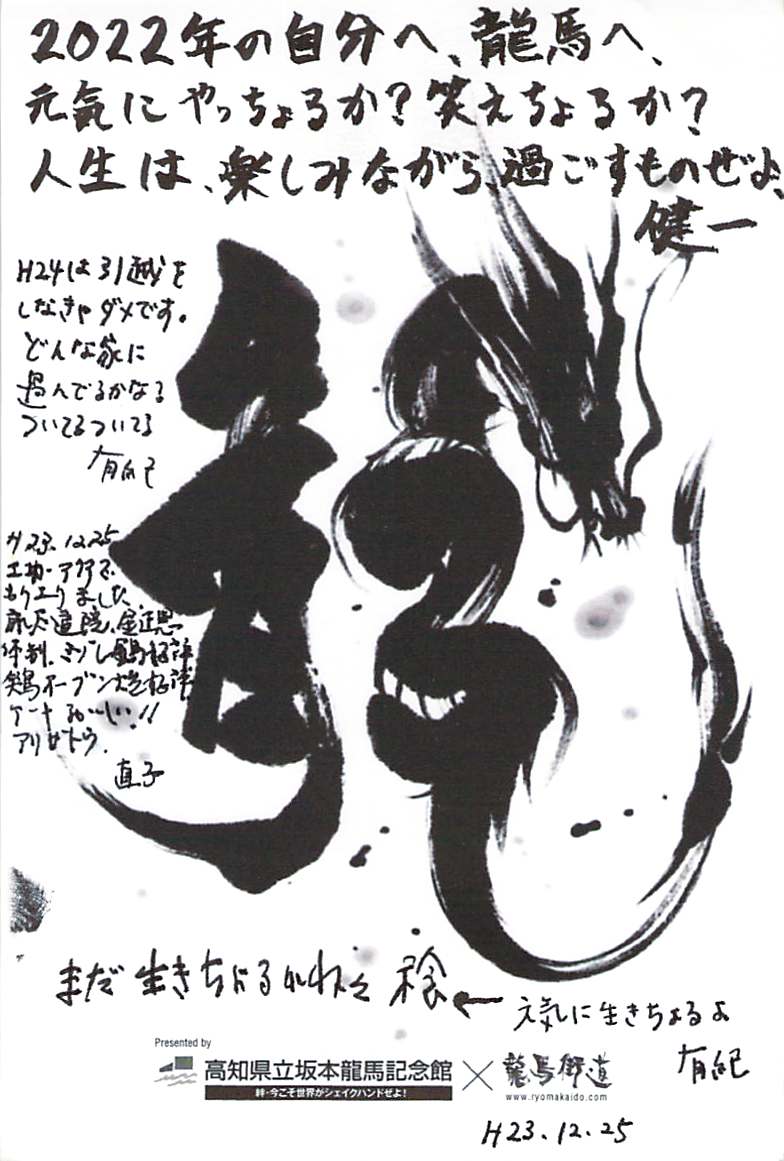 2022年の自分へ、龍馬へ、
元気にやっちょるか?笑えちょるか?
人生は、楽しみながら、過ごすものぜよ、
健一
H24は引越を
しなきゃダメです。
どんな家に
過んでるかなる
ついてるついてる
有紀
H23.12.25
もりエリました
鶏オーブン焼
ケーキおいしい!!
アリガトウ.
直子
まだ生きちょる
元気に生きちょるよ
有紀
龍
Presented by
高知県立坂本龍馬記念館
絆・今こそ世界がシェイクハンドぜよ!
龍馬街道
www.ryomakaido.com
H23.12.25